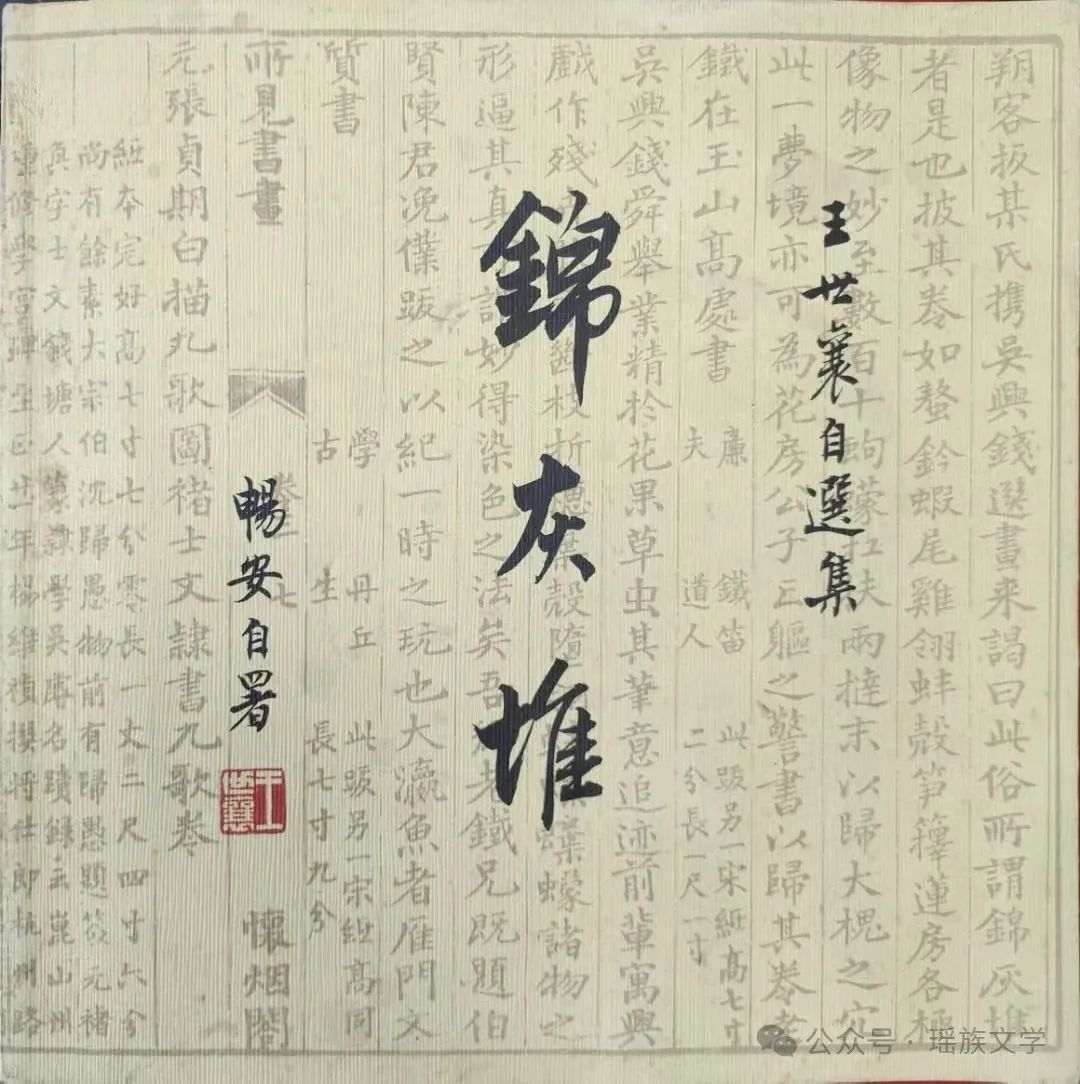 王世襄自選集
錦灰堆
暢安自署
王世襄
朔客扳某氏携吳興錢選畫来謁曰此俗所謂錦灰堆
者是也披其卷如螯鈐蝦尾雞翎蚌殼笋籜蓮房各極
像物之妙至數百十蚼蠓扛夫兩撻末以歸大槐之穴
此一夢境亦可為花房公子亡軀之警書以歸其卷老
鐵在玉山高處書
廉夫
鐵笛道人
此跋另一宋紙高七寸
二分長一尺一寸
吳興錢舜舉業精於花果草虫其筆意追迹前輩寓興
戲作殘
諸物之
形逼其真
妙得染色之法矣吾
老鐵兄既題伯
賢陳君浼僕跋之以紀一時之玩也大瀛魚者雁門文
質書
學古
丹丘生
此跋另一宋紙高同
長七寸九分
所見書畫
懷烟閣
元張貞期白描九歌圖褚士文隸書九歌卷
紙本完好高七寸七分零長一丈二尺四寸六分
尚有餘素大宗伯沈歸愚物前有歸愚題簽元褚
真字士文錢塘人篆隸學吳睿名蹟錄云崑山州
重修學宮碑至正廿一年楊維禎撰將仕郎杭州路
公众号 · 瑶族文学